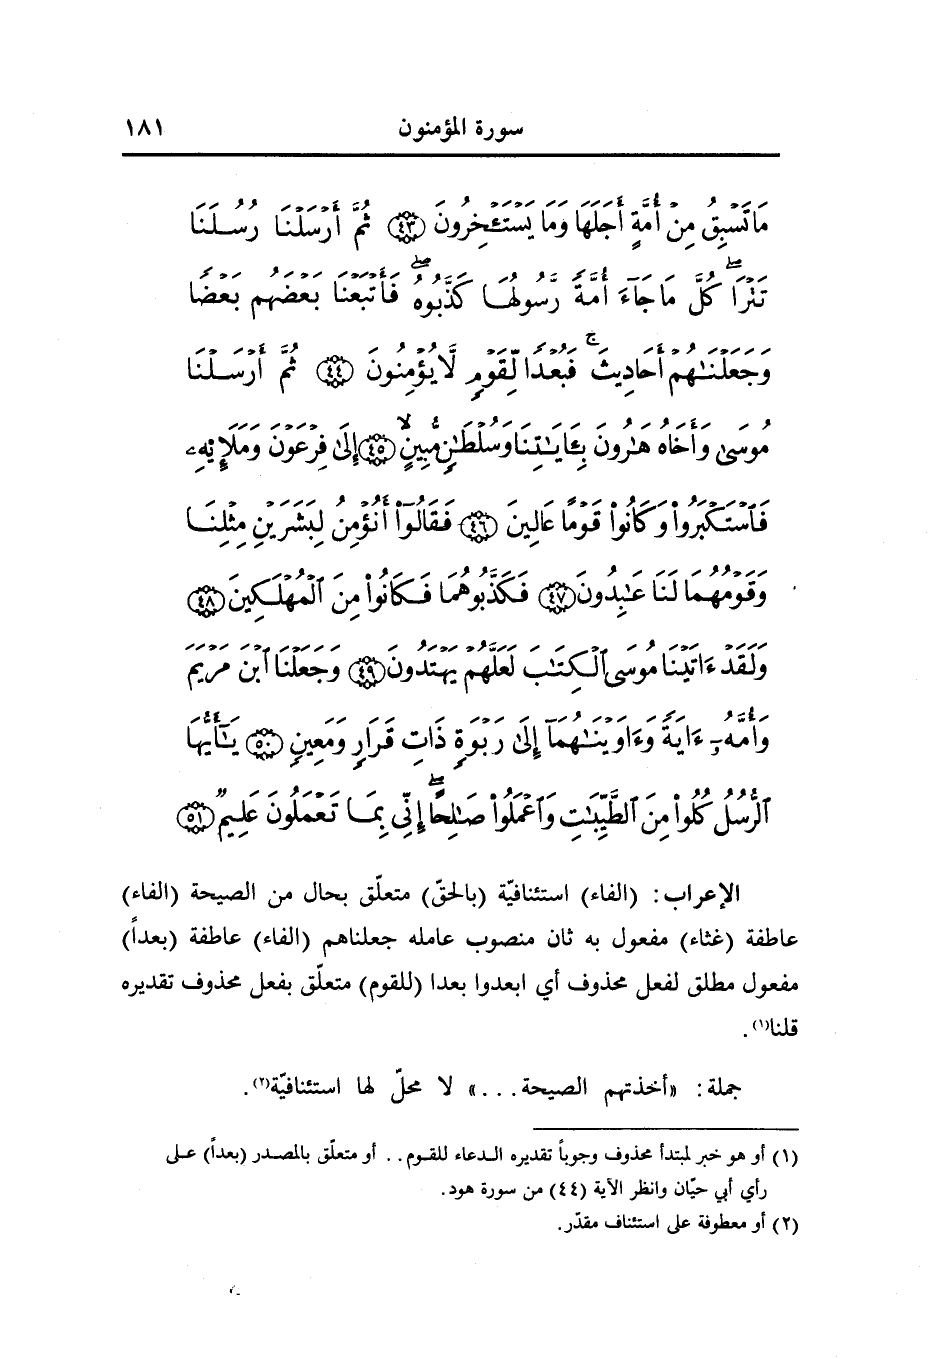 سورة المؤمنون ١٨١
مَا تَسْبِقُ مِنْ أُمَّةٍ أَجَلَهَا وَمَا يَسْتَـْٔخِرُونَ ﴿٤٣﴾ ثُمَّ أَرْسَلْنَا رُسُلَنَا
تَتْرَا ۖ كُلَّ مَا جَآءَ أُمَّةً رَّسُولُهَا كَذَّبُوهُ ۖ فَأَتْبَعْنَا بَعْضَهُم بَعْضًا
وَجَعَلْنَـٰهُمْ أَحَادِيثَ ۚ فَبُعْدًا لِّقَوْمٍ لَّا يُؤْمِنُونَ ﴿٤٤﴾ ثُمَّ أَرْسَلْنَا
مُوسَىٰ وَأَخَاهُ هَـٰرُونَ بِـَٔايَـٰتِنَا وَسُلْطَـٰنٍ مُّبِينٍ ۙ ﴿٤٥﴾ إِلَىٰ فِرْعَوْنَ وَمَلَإِيْهِۦ
فَٱسْتَكْبَرُوا۟ وَكَانُوا۟ قَوْمًا عَالِينَ ﴿٤٦﴾ فَقَالُوٓا۟ أَنُؤْمِنُ لِبَشَرَيْنِ مِثْلِنَا
وَقَوْمُهُمَا لَنَا عَـٰبِدُونَ ﴿٤٧﴾ فَكَذَّبُوهُمَا فَكَانُوا۟ مِنَ ٱلْمُهْلَكِينَ ﴿٤٨﴾
وَلَقَدْ ءَاتَيْنَا مُوسَى ٱلْكِتَـٰبَ لَعَلَّهُمْ يَهْتَدُونَ ﴿٤٩﴾ وَجَعَلْنَا ٱبْنَ مَرْيَمَ
وَأُمَّهُۥٓ ءَايَةً وَءَاوَيْنَـٰهُمَآ إِلَىٰ رَبْوَةٍ ذَاتِ قَرَارٍ وَمَعِينٍ ﴿٥٠﴾ يَـٰٓأَيُّهَا
ٱلرُّسُلُ كُلُوا۟ مِنَ ٱلطَّيِّبَـٰتِ وَٱعْمَلُوا۟ صَـٰلِحًا ۖ إِنِّى بِمَا تَعْمَلُونَ عَلِيمٌ ﴿٥١﴾
الإعراب: (الفاء) استئنافيّة (بالحقّ) متعلّق بحال من الصيحة (الفاء)
عاطفة (غثاء) مفعول به ثان منصوب عامله جعلناهم (الفاء) عاطفة (بعداً)
مفعول مطلق لفعل محذوف أي ابعدوا بعدا (للقوم) متعلّق بفعل محذوف تقديره
قلنا(١).
جملة: «أخذتهم الصيحة...» لا محلّ لها استئنافيّة(٢).
(١) أو هو خبر لمبتدأ محذوف وجوباً تقديره الدعاء للقوم.. أو متعلّق بالمصدر (بعداً) على
رأي أبي حيّان وانظر الآية (٤٤) من سورة هود.
(٢) أو معطوفة على استئناف مقدّر.